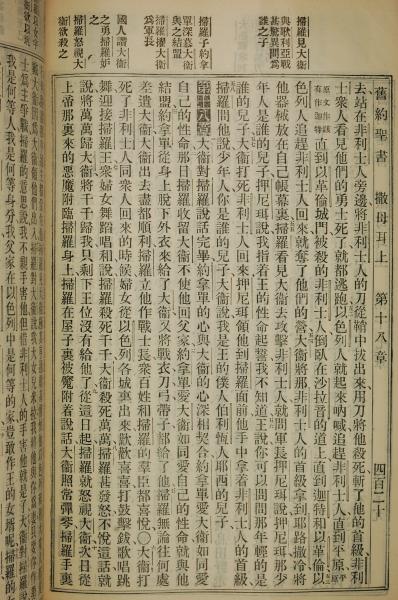 掃羅見大衛
與歌利亞戰
甚驚異問爲
誰之子
掃羅子約拿
單深慕大衛
與之結盟
掃羅擢大衛
爲軍長
國人謂大衛
之勇掃羅妒
之
掃羅怒視大
衛欲殺之
舊約聖書 撒母耳上 第十八章 四百二十
去站在非利士人旁邊將非利士人的刀從鞘中拔出來用刀將他殺死斬了他的首級非利
士衆人看見他們的勇士死了就都逃跑以色列人就起來吶喊追趕非利士人直到平原平原
原文作該有作迦特直到以革倫城門被殺的非利士人倒臥在沙拉音的道上直到迦特和以革倫以
色列人追趕非利士人回來就奪了他們的營大衛將那非利士人的首級拿到耶路撒冷將
他器械放在自己帳幕裏掃羅看見大衛去攻擊非利士人就問軍長押尼珥說押尼珥那少
年人是誰的兒子押尼珥說我指着王的性命起誓我不知道王說你可以問問那年輕的是
誰的兒子大衛打死非利士人回來押尼珥領他到掃羅面前他手中拿着非利士人的首級
掃羅問他說少年人你是誰的兒子大衛說我是王的僕人伯利恆人耶西的兒子
第十八章大衛對掃羅說話完畢約拿單的心與大衛的心深相契合約拿單愛大衛如同愛
自己的性命那日掃羅收留大衛不使他回父家約拿單愛大衛如同愛自己的性命就與他
結盟約拿單從身上脫下外衣來給了大衛又將戰衣刀弓帶子都給了他掃羅無論往何處
差遣大衛大衛出去盡都順利掃羅立他作戰士長衆百姓和掃羅的羣臣都喜悅〇大衛打
死了非利士人同衆人回來的時候婦女從以色列各城裏出來歡歡喜喜打鼓擊鈸歌唱跳
舞迎接掃羅王衆婦女舞蹈唱和說掃羅殺死千千大衛殺死萬萬掃羅甚發怒不悅這話就
說將萬萬歸大衛將千千歸我只剩下王位沒有給他了從這日起掃羅就怒視大衛次日從
上帝那裏來的惡魔附臨掃羅身上掃羅在屋子裏被魔附着說話大衛照常彈琴掃羅手裏
士爲主爭戰掃羅的意思說我不親手害他但借非利士人的手害他就是了大衛對掃羅
我是何等人我是何等身分我父家在以色列中是何等的家豈敢作王的女壻呢掃羅的